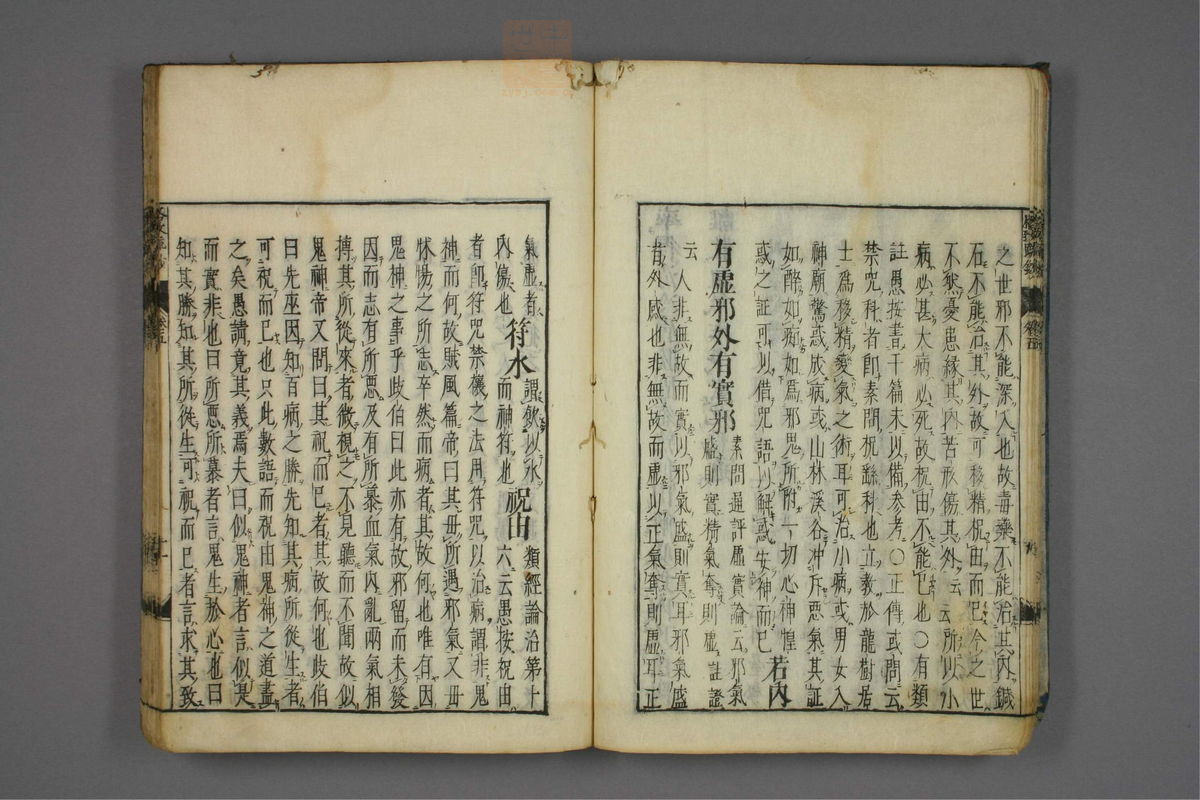 之世邪不能深入也故毒藥不能治其内鍼
石不能治其外故可移精祝由而已今之世
不然憂患縁其内苦形傷其外云云所以小
病必甚大病必死故祝由不能已也〇有類
註愚按書千篇未以備参考〇正傳或問云
禁咒科者即素問祝繇科也立教於龍樹居
士為移精變氣之術耳可治小病或男女入
神廟驚惑成病或山林溪谷冲斥惡氣其証
如醉如痴如爲邪鬼所附一切心神惶
惑之証可以借咒語以解惑安神而已 若内
有虛邪外有實邪 素問通評虛實論云邪氣
盛則實精氣奪則虛註證
云人非無故而實以邪氣盛則實耳邪氣盛
者外感也非無故而虛以正氣奪則虛耳正
氣虛者
内傷也 符水 謂飲以水
而神符也 祝由 類經論治第十
六云愚按祝由
者即符咒禁禳之法用符咒以治病謂非鬼
神而何故賊風篇帝曰其毋所遇邪氣又毋
怵惕之所志卒然而病者其故何也唯有因
鬼神之事乎歧伯曰此亦有故邪留而未發
因而志有所惡及有所慕血氣内亂兩氣相
搏其所從來者微視之不見聽而不聞故似
鬼神帝又問曰其祝而已者其故何也歧伯
曰先巫因知百病之勝先知其病所從生者
可祝而已也只此數語而祝由鬼神之道盡
之矣愚請竟其義焉夫曰似鬼神者言似是
而實非也曰所惡所慕者言鬼生於心也曰
知其勝知其所從生可祝而已者言求其致